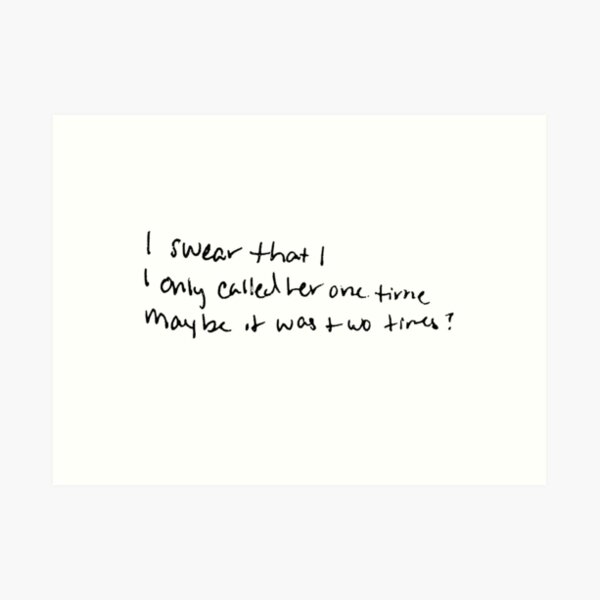 I swear that I
I only called her one time
maybe it was two times?